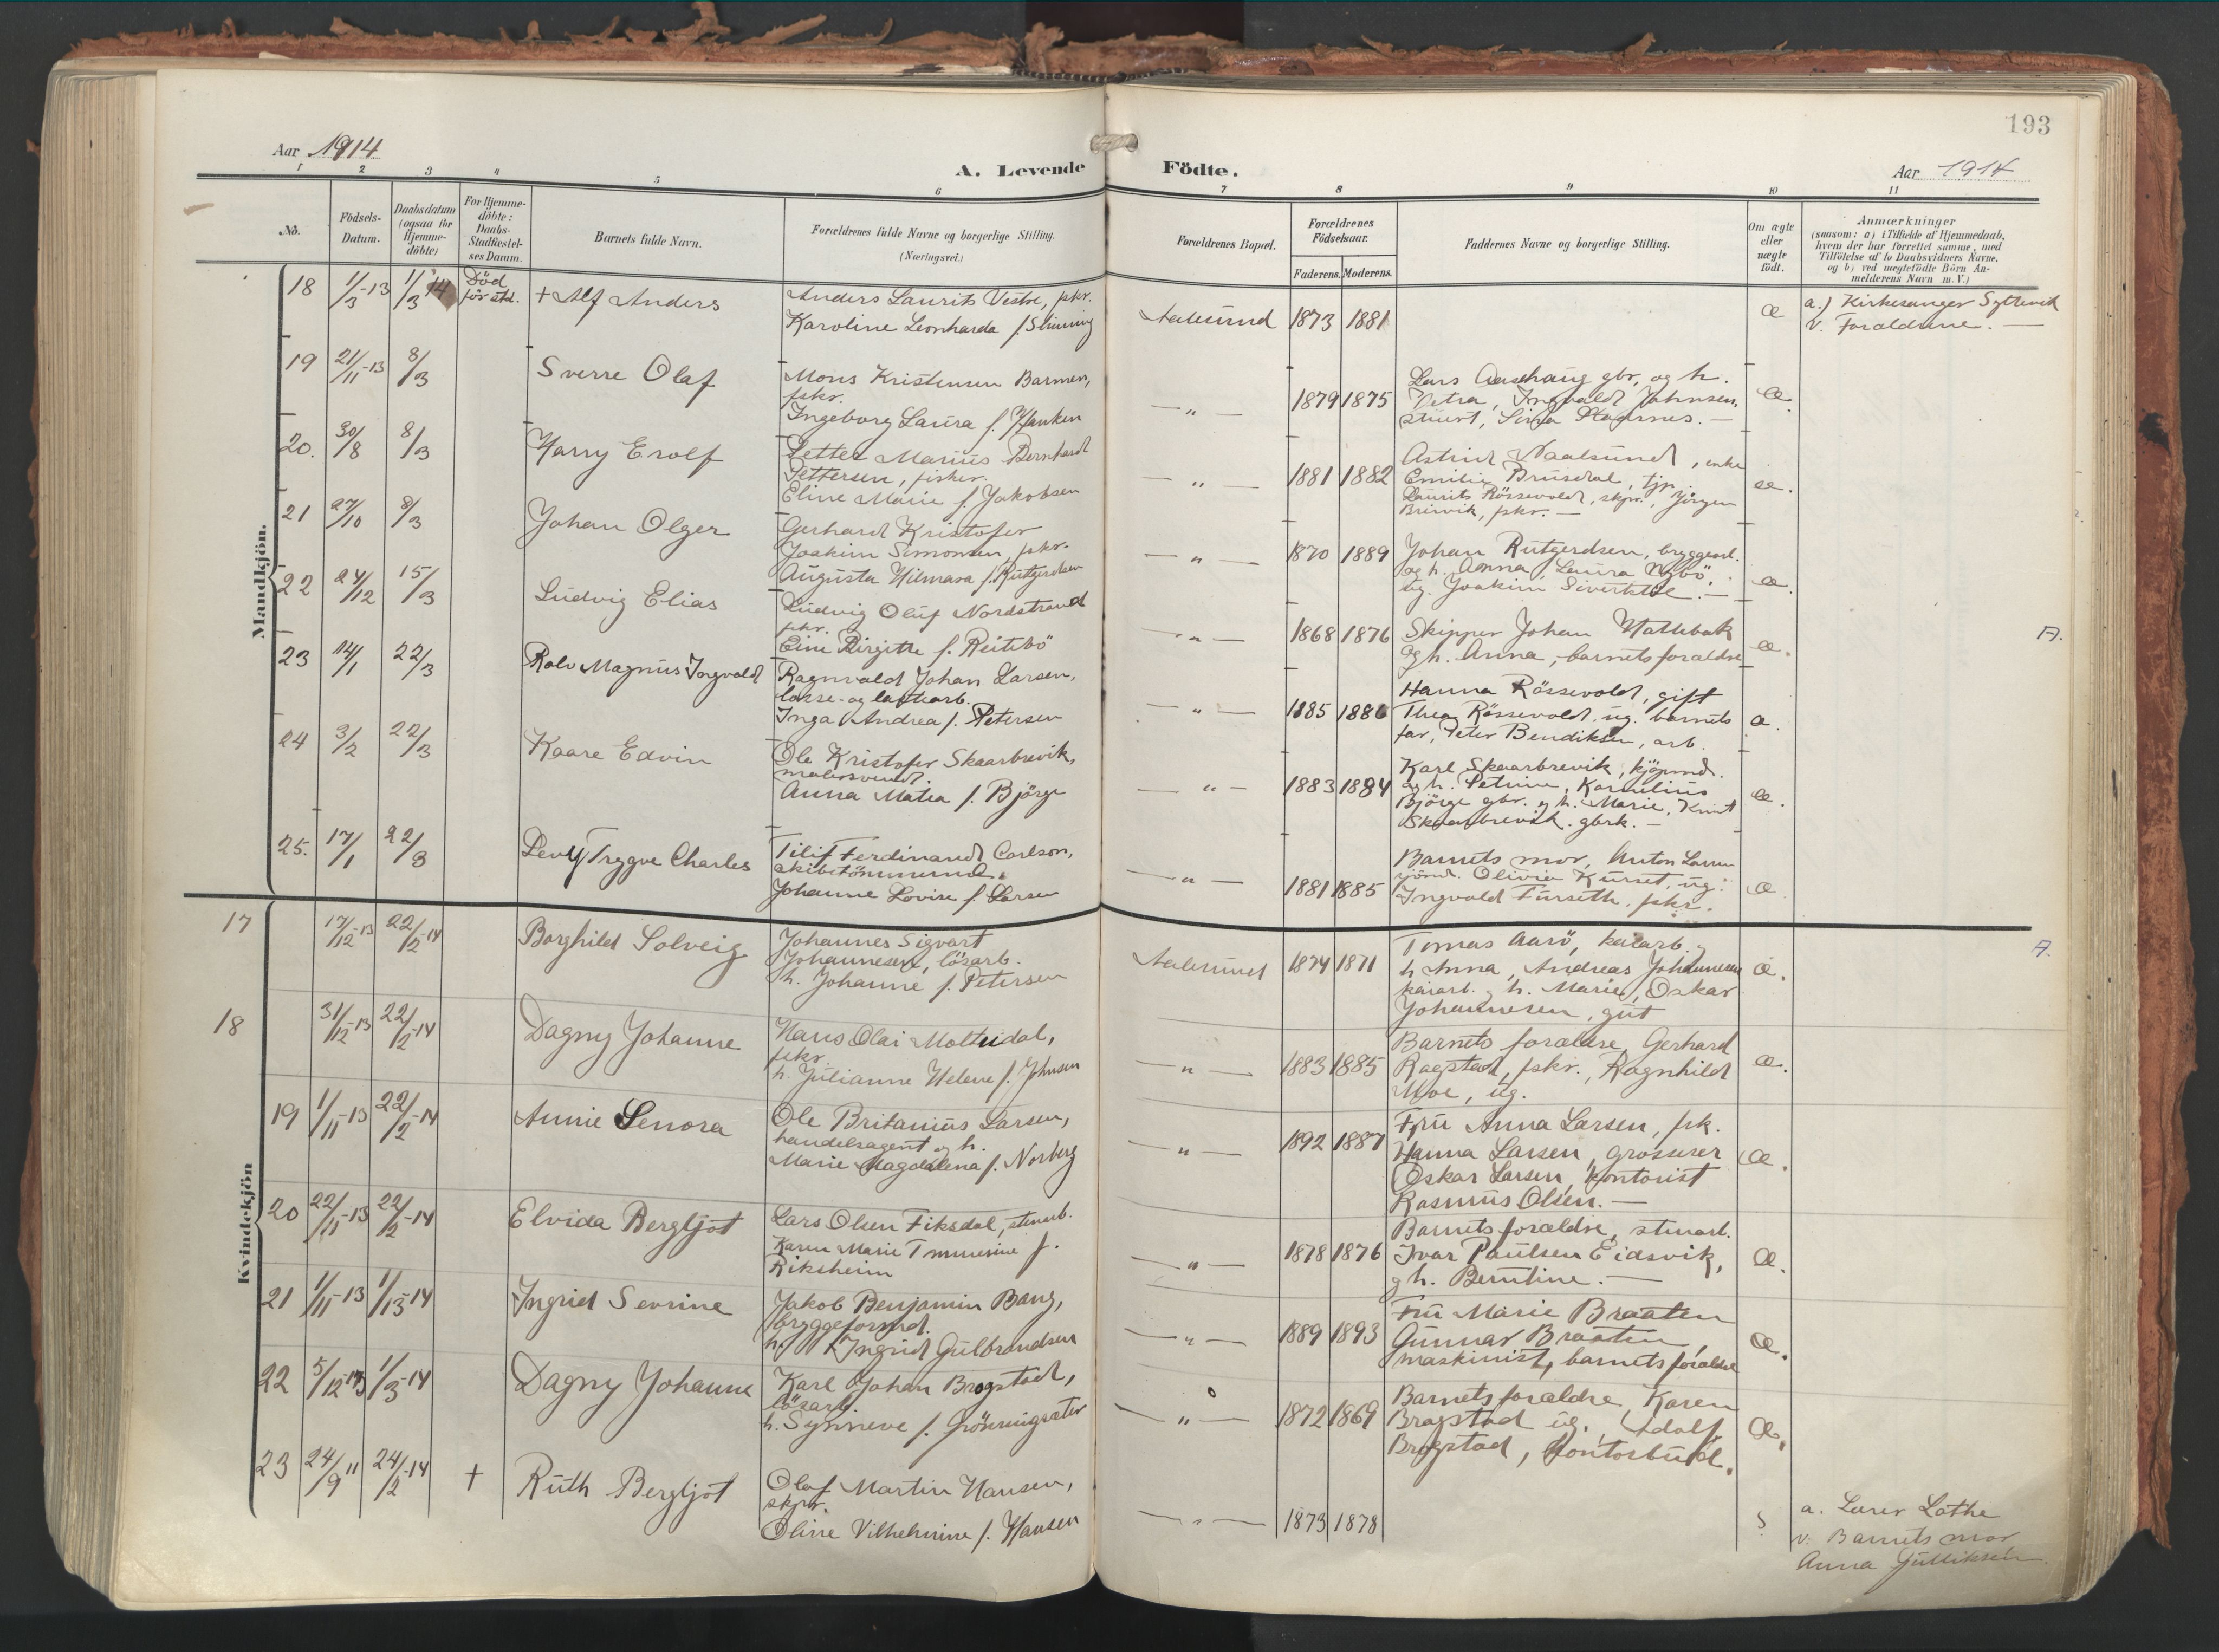 193
Aar 1914
A. Levende Födte.
Aar 1914
1 2 3 4 5 6 7 8 9 10 11
No.
Födsels-Datum.
Daabsdatum (ogsaa for Hjemmedöbte)
For Hjemmedöbte: Daabs-Stadfestelses Datum.
Barnets fulde Navn.
Forældrenes fulde Navne og borgerlige Stilling.
(Næringsvei.)
Forældrenes Bopæl.
Forældrenes Födselsaar.
Faderens. Moderens.
Faddernes Navne og borgerlige Stilling.
Om ægte eller uægte födt.
Anmærkninger
(saasom: a) i Tilfælde af Hjemmedaab, hvem der har forrettet samme, med Tilföielse af to Daabsvidners Navne, og b) ved uægtefödte Börn Anmelderens Navn m. V.)
Mandkjön.
18 1/3-13 1/3 14 Död för std. + Alf Anders
Anders Laurits Vestre, fskr.
Karoline Leonharda f. Slinning
Aalesund 1873 1881 æ
a.) Kirkesanger Syltevik
v. Forældrene. —
19 21/11-13 8/3 Sverre Olaf
Mons Kristensen Barmen,
fskr.
Ingeborg Laura f. Hanken
— " — 1879 1875
Lars Aasehaug gbr, og h.
Petra, Ingvald Johnsen,
stuert, Sina Stadsnes. —
æ.
20. 30/8 8/3 Harry Erolf
Petter Marius Bernhard
Pettersen, fisker.
Eline Marie f. Jakobsen
— " — 1881 1882
Astrid Naalsund, enke
Emilie Brusdal, tjp.
Laurits Rössevold, skpr., Jörgen
Breivik, fskr. —
æ.
21 27/10 8/3 Johan Olger
Gerhard Kristofer
Joakim Simonsen, fskr.
Augusta Hilmara f. Rutgerdsen
— " — 1870 1889
Johan Rutgerdsen, bryggearb.
og h. Anna, Laura Nybö,
ug. Joakim
æ.
22 24/12 15/3 Ludvig Elias
Ludvig Oluf Nordstrand
fskr.
Eine Birgitte f. Reitebö
— " — 1868 1876
Skipper Johan Hattebak
og h. Anna, barnets forældre
æ. A.
23 14/1 22/3 Rolv Magnus Ingvald
Ragnvald Johan Larsen,
losse- og lastearb.
Inga Andrea f. Petersen
— " — 1885 1886
Hanna Rössevold, gift
Thea Rössevold. ug. barnets
far, Peter Bendiksen, arb.
æ.
24 3/2 22/3 Kaare Edvin
Ole Kristofer Skaarbrevik,
malersvend.
Anna Matea f. Björge
— " — 1883 1884
Karl Skaarbrevik, kjöpmd.
og h. Petrine, Kornelius
Björge gbr. og h. Marie, Knut
Skaarbrevik. gbrk. —
æ.
25. 17/1 22/3 Levy Trygve Charles
Tilif Ferdinand Carlson,
skibstömmermd.
Johanne Lovise f. Larsen
— " — 1881 1885
Barnets mor, Anton Larsen
sjömd. Olivia Kurset, ug.
Ingvald Furseth, fskr.
æ
Kvindekjön
17 17/12-13 22/2-14 Borghild Solveig
Johannes Sigvart
Johannesen, lösarb.
h. Johanne f. Petersen
Aalesund 1874 1871
Tomas Aarö, kaiarb. og
h Anna, Andreas Johannesen
kaiarb. og h. Marie, Oskar
Johannesen, gut
æ. A.
18 31/12-13 22/2-14 Dagny Johanne
Hans Olai Molteidal,
fskr.
h. Julianne Helene f. Johnsen
— " — 1883 1885
Barnets forældre, Gerhard
Ragstad, fskr., Ragnhild
Moe, ug.
æ.
19 1/11-13 22/2-14 Annie Senora
Ole Britanius Larsen,
handelsagent og h.
Marie Magdalena f. Norberg
— " — 1892 1887
Fru Anna Larsen, frk.
Hanna Larsen, grosserer
Oskar Larsen, kontorist
Rasmus Olsen. —
æ.
20 22/11-13 22/2-14 Elvida Bergljot
Lars Olsen Fiksdal, stenarb.
Karen Marie f.
Riksheim
— " — 1878 1876
Barnets forældre, stenarb.
Ivar Paulsen Eidsvik,
og h. Berntine. —
æ.
21 1/11-13 1/13-14 Ingrid Sevrine
Jakob Benjamin Bang,
bryggeformd.
h. Ingrid Gulbrandsen
— " — 1889 1893
Fru Marie Braaten
Gunnar Braaten
maskinist, barnets forældre
æ.
22 5/12-13 1/3-14 Dagny Johanne
Karl Johan Brogstad,
lösarb.
h. Synneve f. Grönningsæter
— " — 1872 1869
Barnets forældre, Karen
Brogstad ug. Adolf
Brogstad, kontorbud.
æ.
23 24/9 11 24/2-14 + Ruth Bergljot
Olaf Martin Hansen,
skpr.
Oline Vilhelmine f. Hansen
— " — 1873 1878
a. Lærer Lothe
v. Barnets mor
Anna Gulliksen.